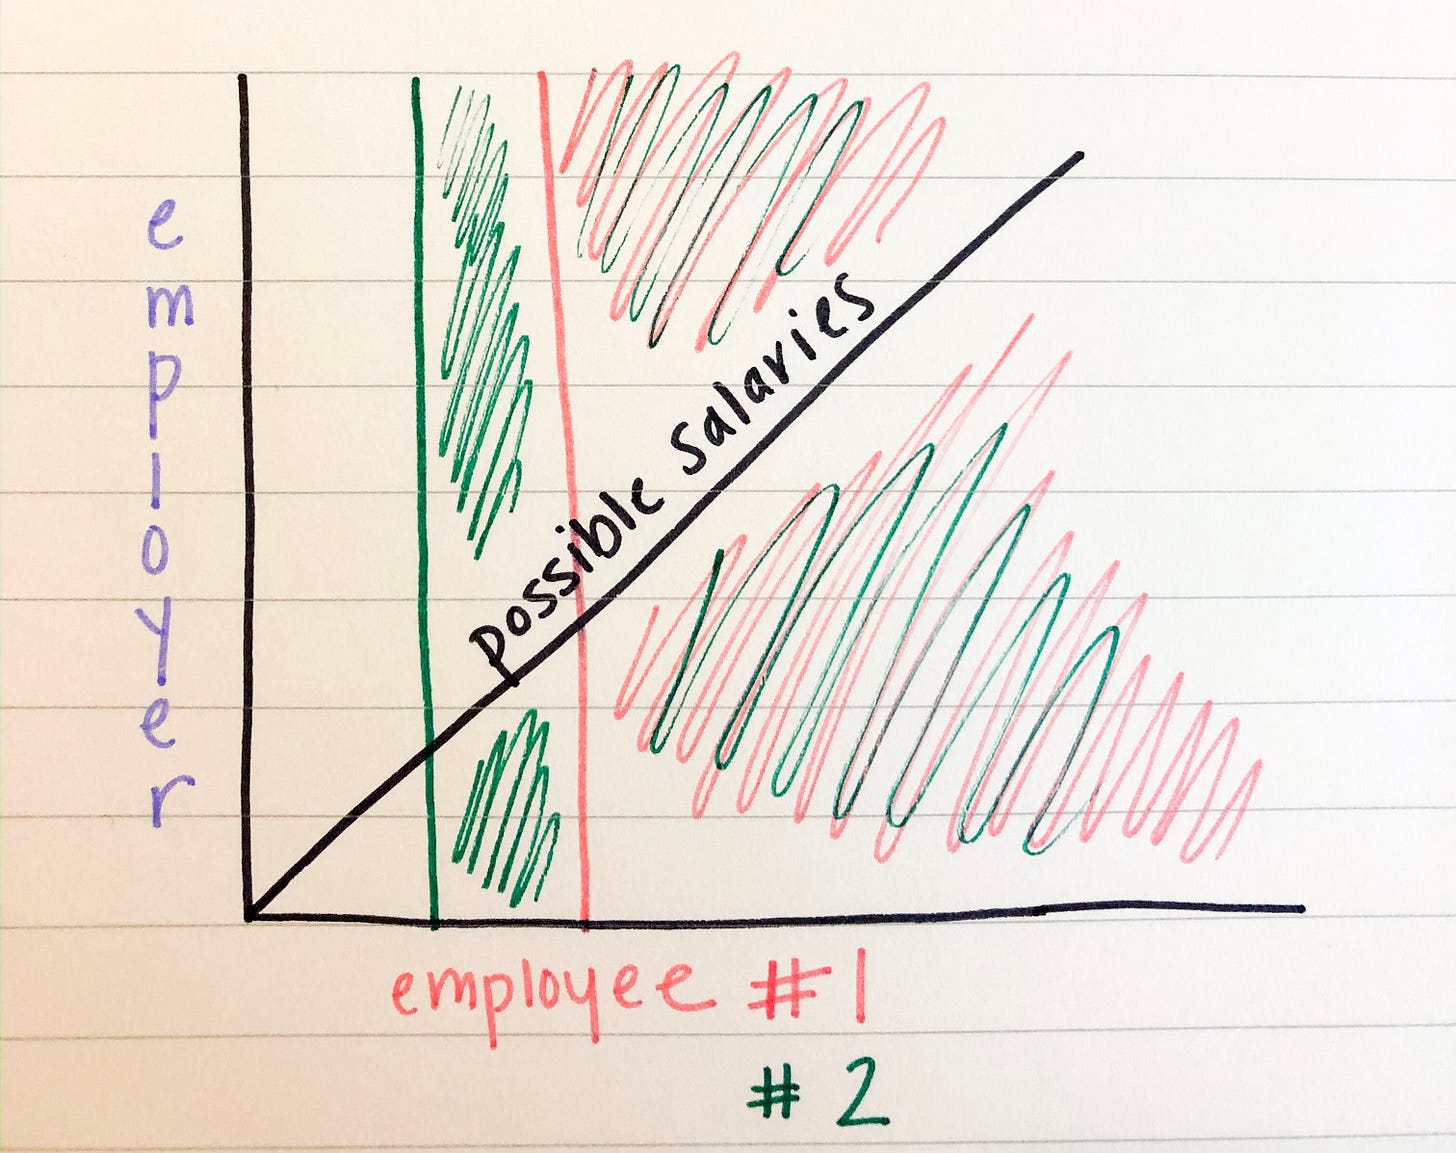 employer
possible salaries
employee #1
#2